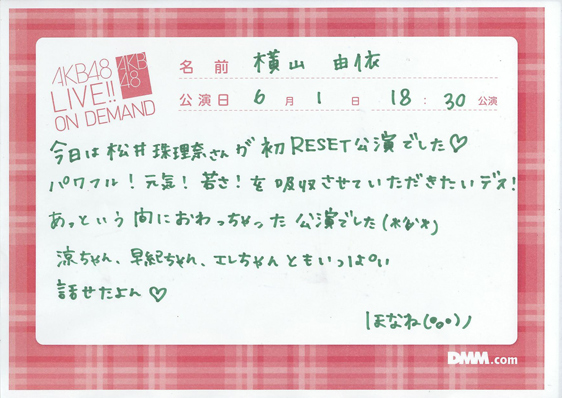 AKB48
LIVE!!
ON DEMAND
AKB
48
名前 横山 由依
公演日 6月1日 18:30公演
今日は松井珠理奈さんが初RESET公演でした♡
パワフル!元気!若さ!を吸収させていただきたいデス!
あっという間におわっちゃった公演でした
涼ちゃん、早紀ちゃん、エレちゃんともいっぱい
話せたよん♡
ほなね(•ₒ•)ノ
DMM.com